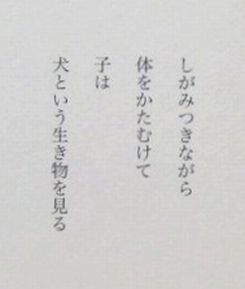 しがみつきながら
体をかたむけて
子は
犬という生き物を見る